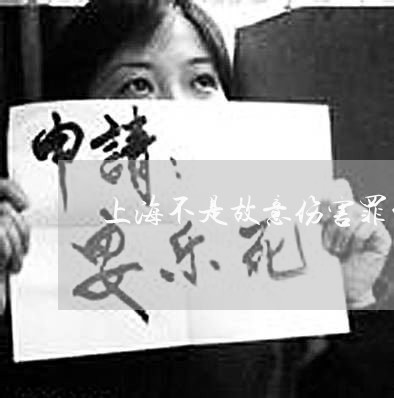 申請：
上海不是故意伤害罪
安乐死